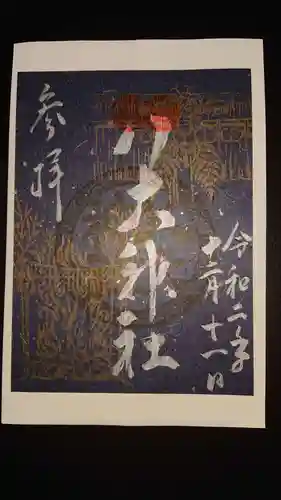 令和二年
十二月十一日
八大神社
参拝